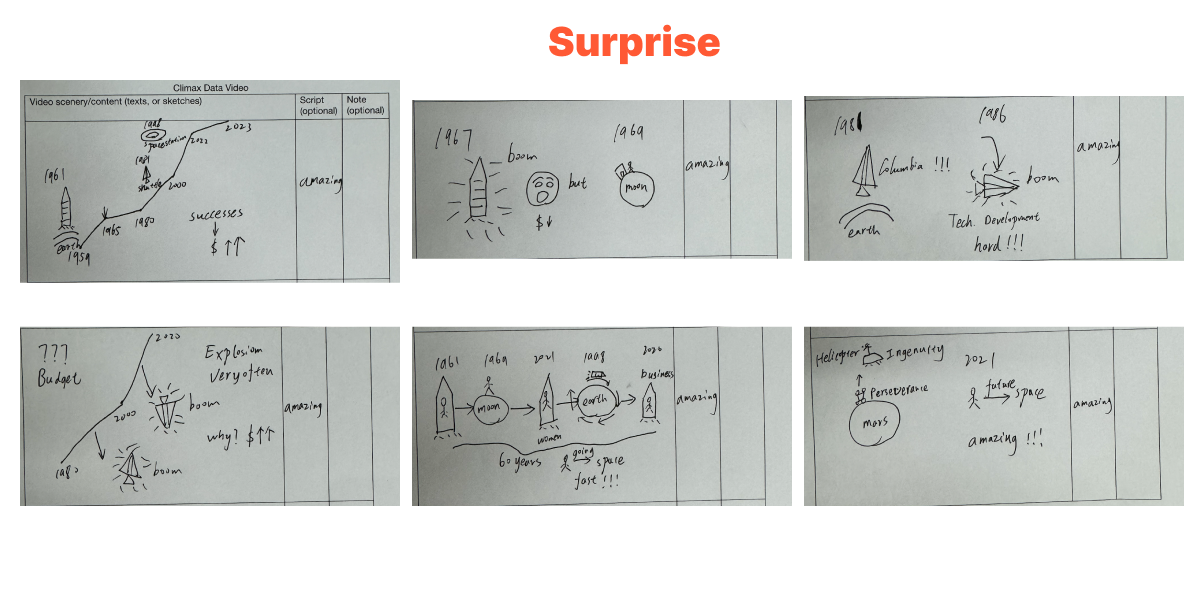 Surprise
Climax Data Video
Video scenery/content (texts, or sketches)
Script (optional)
Note (optional)
1998
space station
2023
2022
1981
shuttle
2000
1961
1980
1965
earth
1959
successes
$ ↑↑
amazing
1967
boom
but
$↓
1969
moon
amazing
1981
Columbia !!!
earth
1986
boom
Tech. Development
hard !!!
amazing
???
Budget
2020
2000
1980
boom
boom
Explosion
very often
why? $↑↑
amazing
1961
1969
2021
1998
2020
business
moon
earth
women
60 years
going
space
fast !!!
amazing
Helicopter
Ingenuity
Perseverance
mars
2021
future
space
amazing !!!
amazing